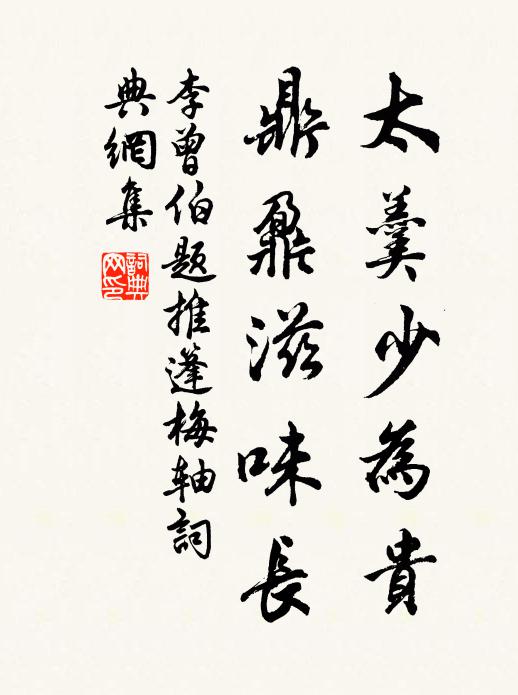 太羹少為貴
鼎鼐滋味長
李曾伯題推蓬梅轴詞
典網集
詞典
网印